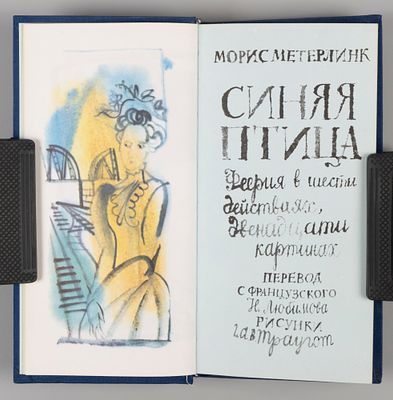 МОРИС МЕТЕРЛИНК
СИНЯЯ
ПТИЦА
Феерия в шести
действиях,
двенадцати
картинах
ПЕРЕВОД
С ФРАНЦУЗСКОГО
Н. Любимова
РИСУНКИ
Г.А.В. ТРАУГОТ